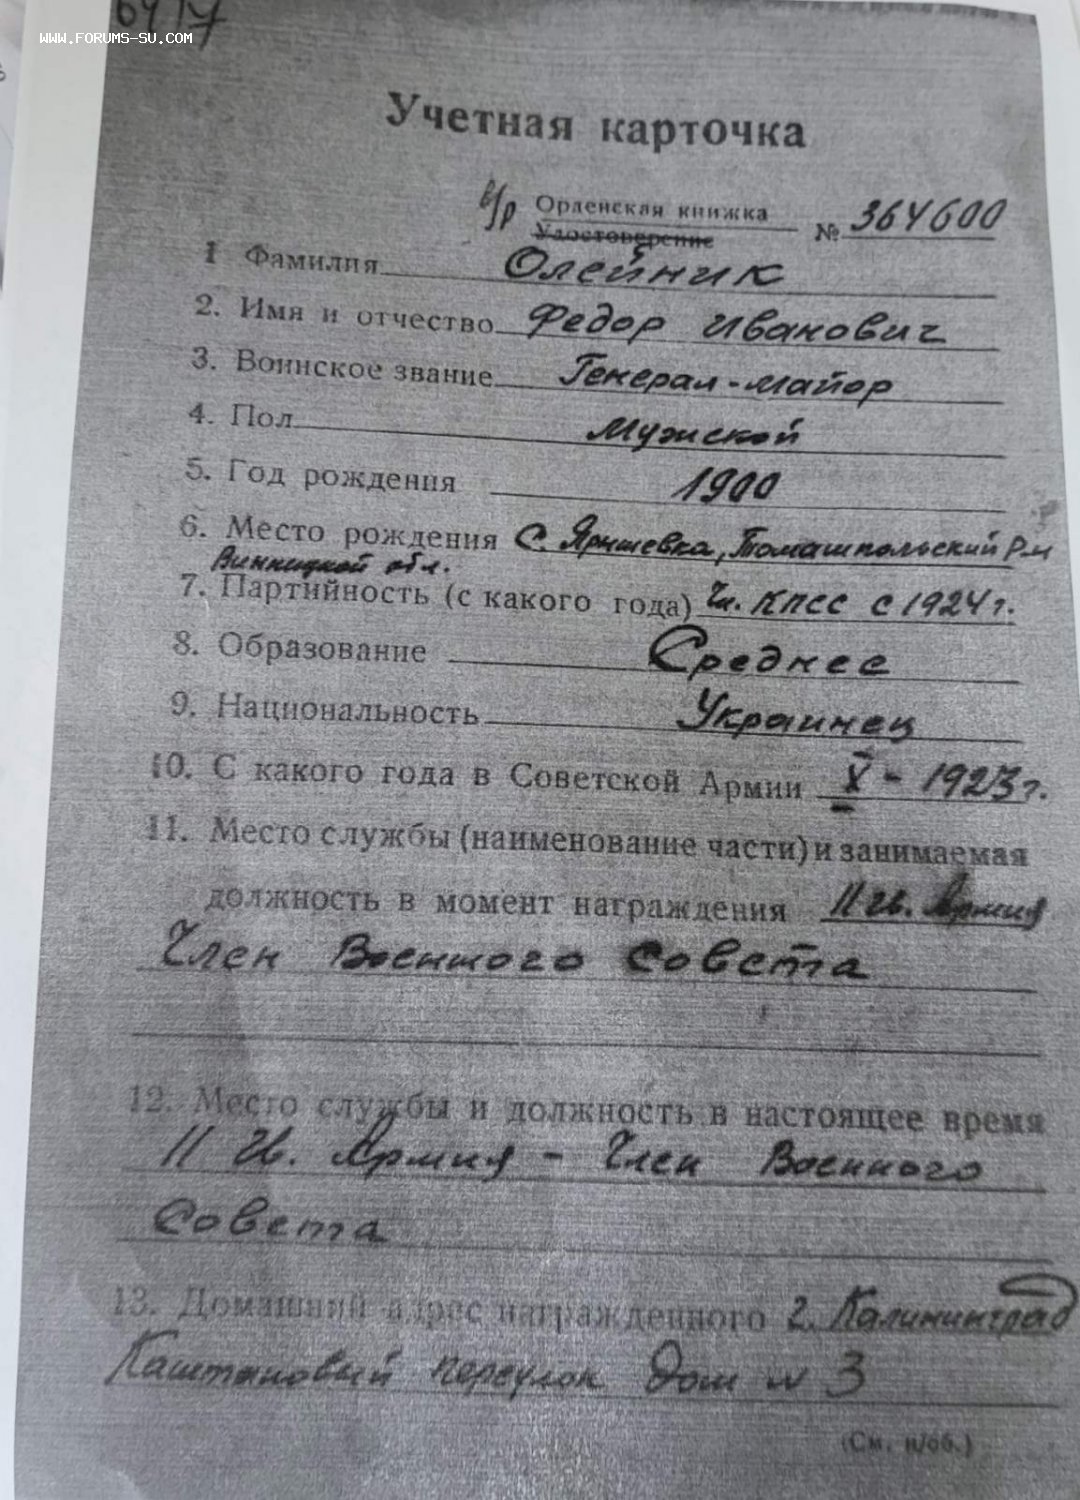 WWW.FORUMS-SU.COM
Учетная карточка
в/р Орденская книжка № 364600
Удостоверение
1 Фамилия Олейник
2. Имя и отчество Федор Иванович
3. Воинское звание Генерал-майор
4. Пол Мужской
5. Год рождения 1900
6. Место рождения с. Яришевка, Томашпольский р-н
Винницкой обл.
7. Партийность (с какого года) Чл. КПСС с 1924 г.
8. Образование Среднее
9. Национальность Украинец
10. С какого года в Советской Армии X - 1923 г.
11. Место службы (наименование части) и занимаемая
должность в момент награждения 11 Гв. Армия
Член Военного Совета
12. Место службы и должность в настоящее время
11 Гв. Армия - Член Военного
Совета
13. Домашний адрес награжденного г. Калининград
Каштановый переулок Дом № 3
(См. н/об.)